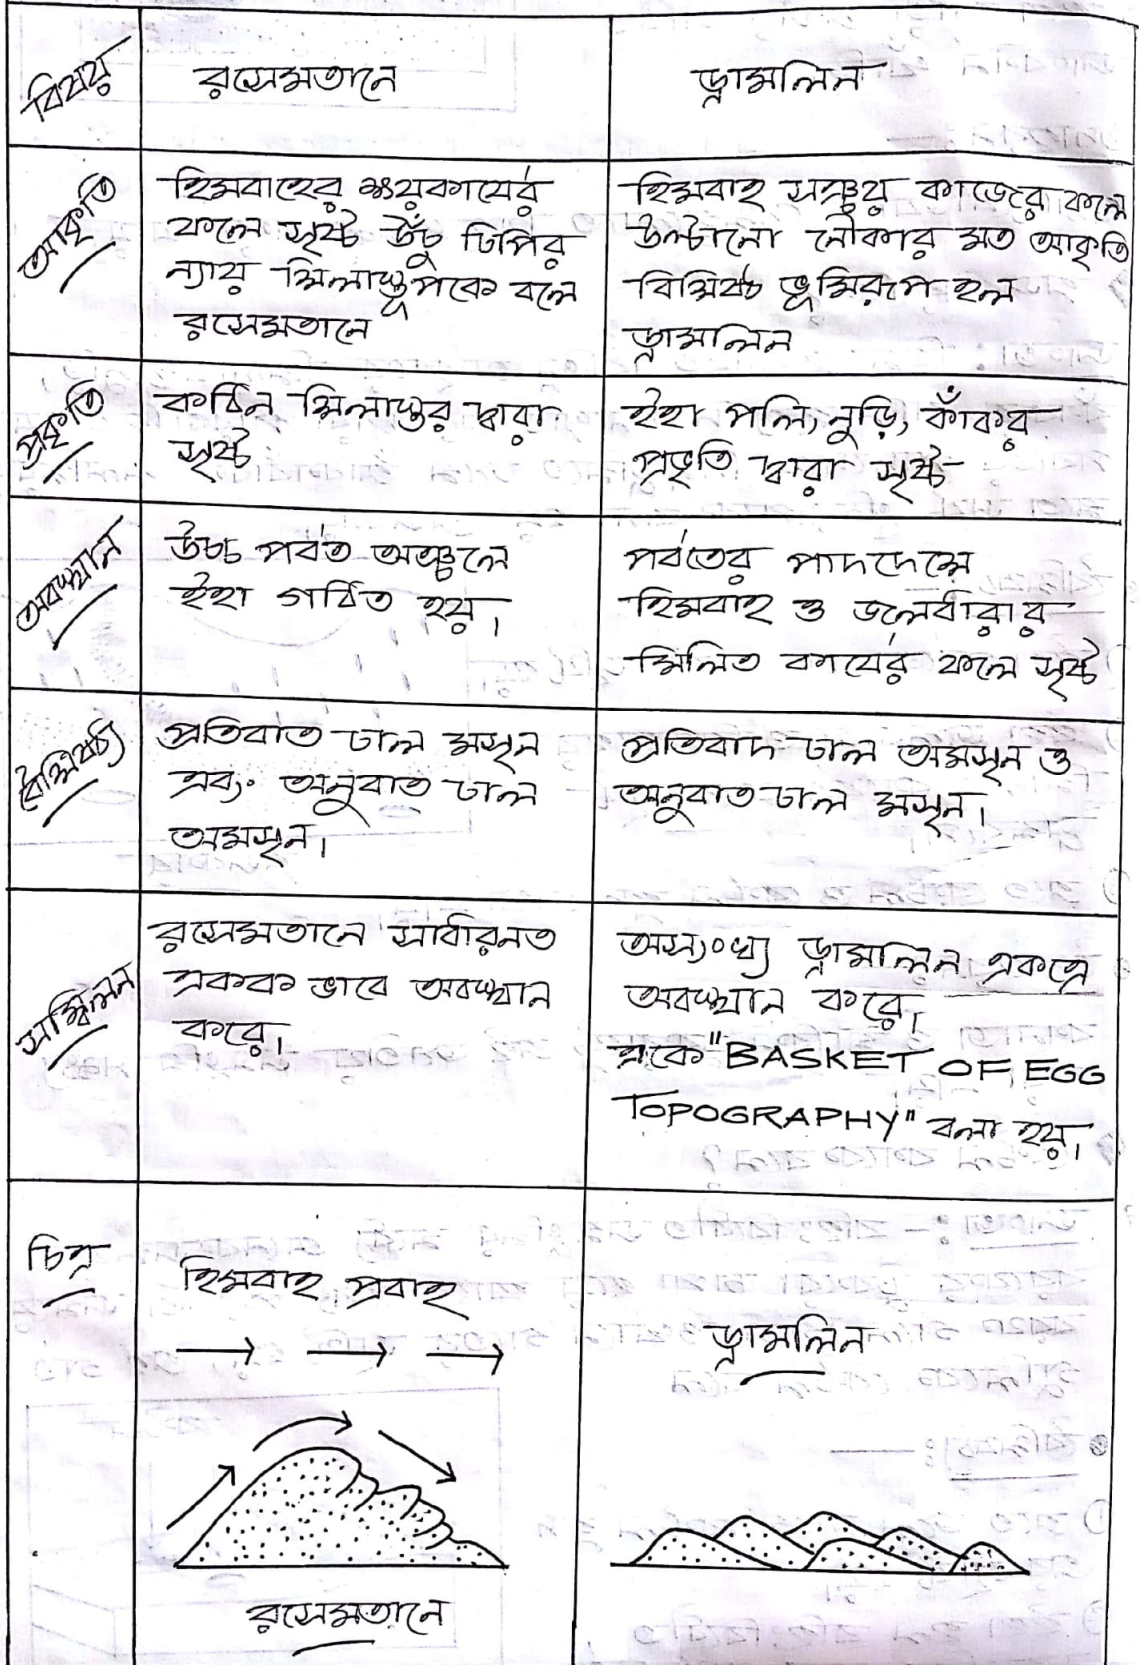 বিষয়
রসেমতানে
ড্রামলিন
আকৃতি
হিমবাহের ক্ষয়কার্যের
ফলে সৃষ্ট উঁচু ঢিপির
ন্যায় শিলাস্তূপকে বলে
রসেমতানে
হিমবাহ সঞ্চয় কাজের ফলে
উল্টানো নৌকার মত আকৃতি
বিশিষ্ট ভূমিরূপ হল
ড্রামলিন
প্রকৃতি
কঠিন শিলাস্তর দ্বারা
সৃষ্ট
ইহা পলি, নুড়ি, কাঁকর
প্রভৃতি দ্বারা সৃষ্ট
অবস্থান
উচ্চ পর্বত অঞ্চলে
ইহা গঠিত হয়।
পর্বতের পাদদেশে
হিমবাহ ও জলধারার
মিলিত কার্যের ফলে সৃষ্ট
বৈশিষ্ট্য
প্রতিবাত ঢাল মসৃন
এবং অনুবাত ঢাল
অমসৃন।
প্রতিবাদ ঢাল অমসৃন ও
অনুবাত ঢাল মসৃন।
সম্মিলন
রসেমতানে সাধারনত
একক ভাবে অবস্থান
করে।
অসংখ্য ড্রামলিন একত্রে
অবস্থান করে।
একে "BASKET OF EGG
TOPOGRAPHY" বলা হয়।
চিত্র
হিমবাহ প্রবাহ
ড্রামলিন
রসেমতানে